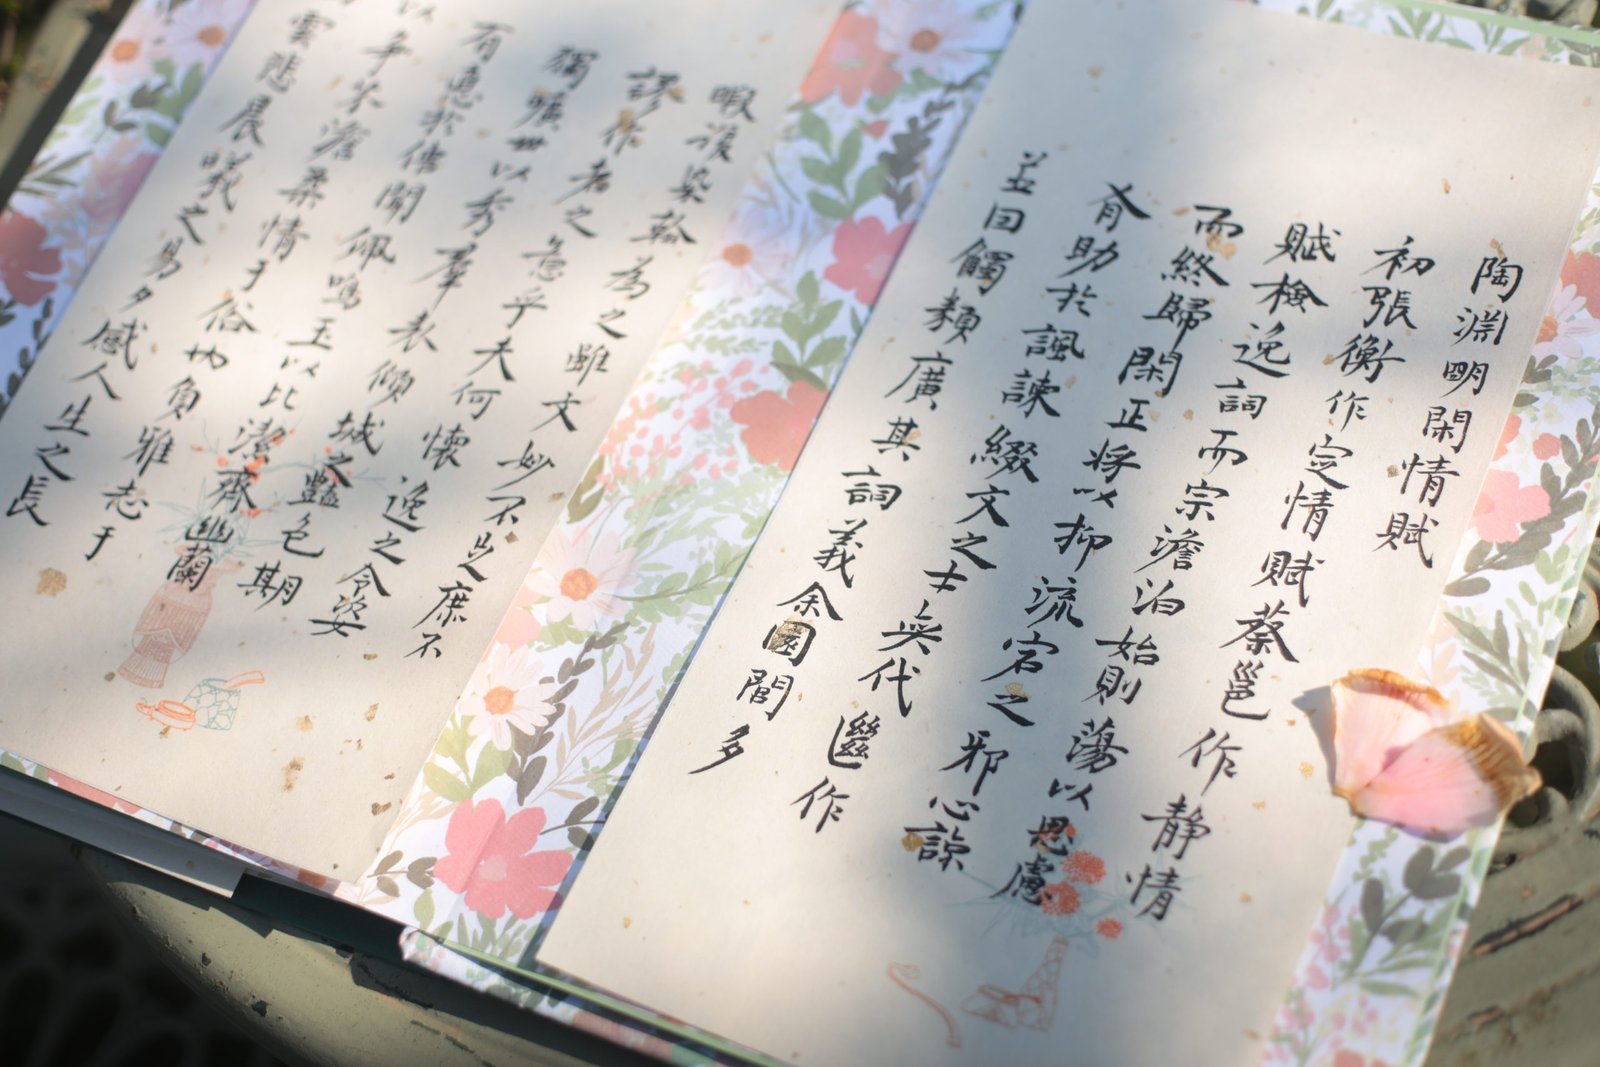 陶淵明閑情賦
初張衡作定情賦蔡邕作靜情
賦檢逸詞而宗澹泊始則蕩以思慮
而終歸閑正將以抑流宕之邪心諒
有助於諷諫綴文之士奕代繼作
並因觸類廣其詞義余園閭多
暇復染翰為之雖文妙不足庶不
謬作者之意乎夫何懷逸之令姿
獨曠世以秀羣表傾城之豔色期
有德於傳聞佩鳴玉以比潔齊幽蘭
以爭芬澹柔情于俗內負雅志于
雲悲晨曦之易夕感人生之長